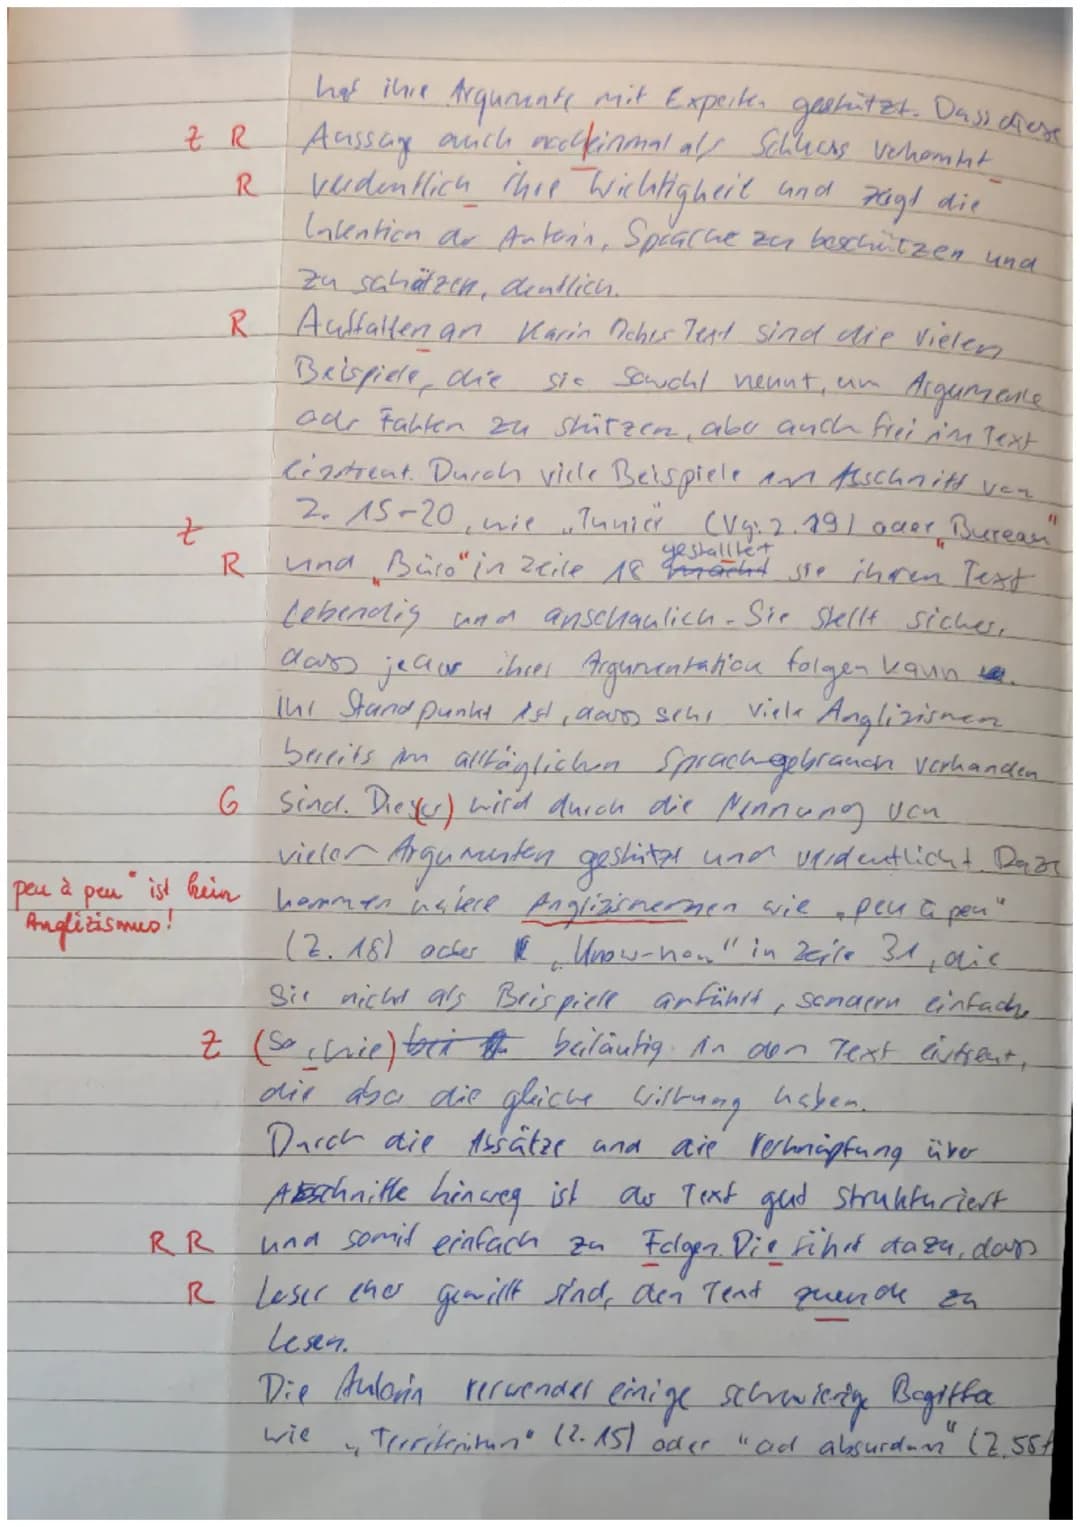 hat ihre Argumente mit Experten gestützt. Dass diese
Z R Aussage auch nocheinmal als Schluss vorkommt
R verdeutlich ihre Wichtigkeit und zeigt die
Intention der Autorin, Sprache zu beschützen und
zu schätzen, deutlich.
R Auffallen an Karin Text sind die vielen
Beispiele, die sie sowohl nennt, um Argumente
oder Fakten zu stützen, aber auch frei im Text
einstreut. Durch viele Beispiele im Abschnitt von
Z. 15-20, wie „Tunier (Vgl. Z. 19) oder „Bureau"
Z
gestalltet
R und „Büro" in Zeile 18 macht sie ihren Text
lebendig und anschaulich. Sie stellt sicher,
dass jeder ihrer Argumentation folgen kann.
Ihr Standpunkt ist, dass sehr viele Anglizismen
bereits im alltäglichen Sprachgebrauch vorhanden
G sind. Dies(er) wird durch die Nennung von
vielen Argumenten gestützt und verdeutlicht. Dazu
peu à peu" ist kein
Anglizismus!
kommen weitere Anglizismen wie „peu à peu"
(Z. 18) oder „Know-how" in Zeile 31, die
sie nicht als Beispiele anführt, sondern einfach
Z (so, wie) beiläufig in den Text einstreut,
die aber die gleiche Wirkung haben.
Durch die Absätze und die Verknüpfung über
Abschnitte hinweg ist der Text gut strukturiert
R R und somit einfach zu Folgen. Die führt dazu, dass
R Leser eher gewillt sind, den Text zuende zu
lesen.
Die Autorin verwendet einige schwierige Begriffe
wie „Territorium" (Z. 15) oder "ad absurdum" (Z. 55f